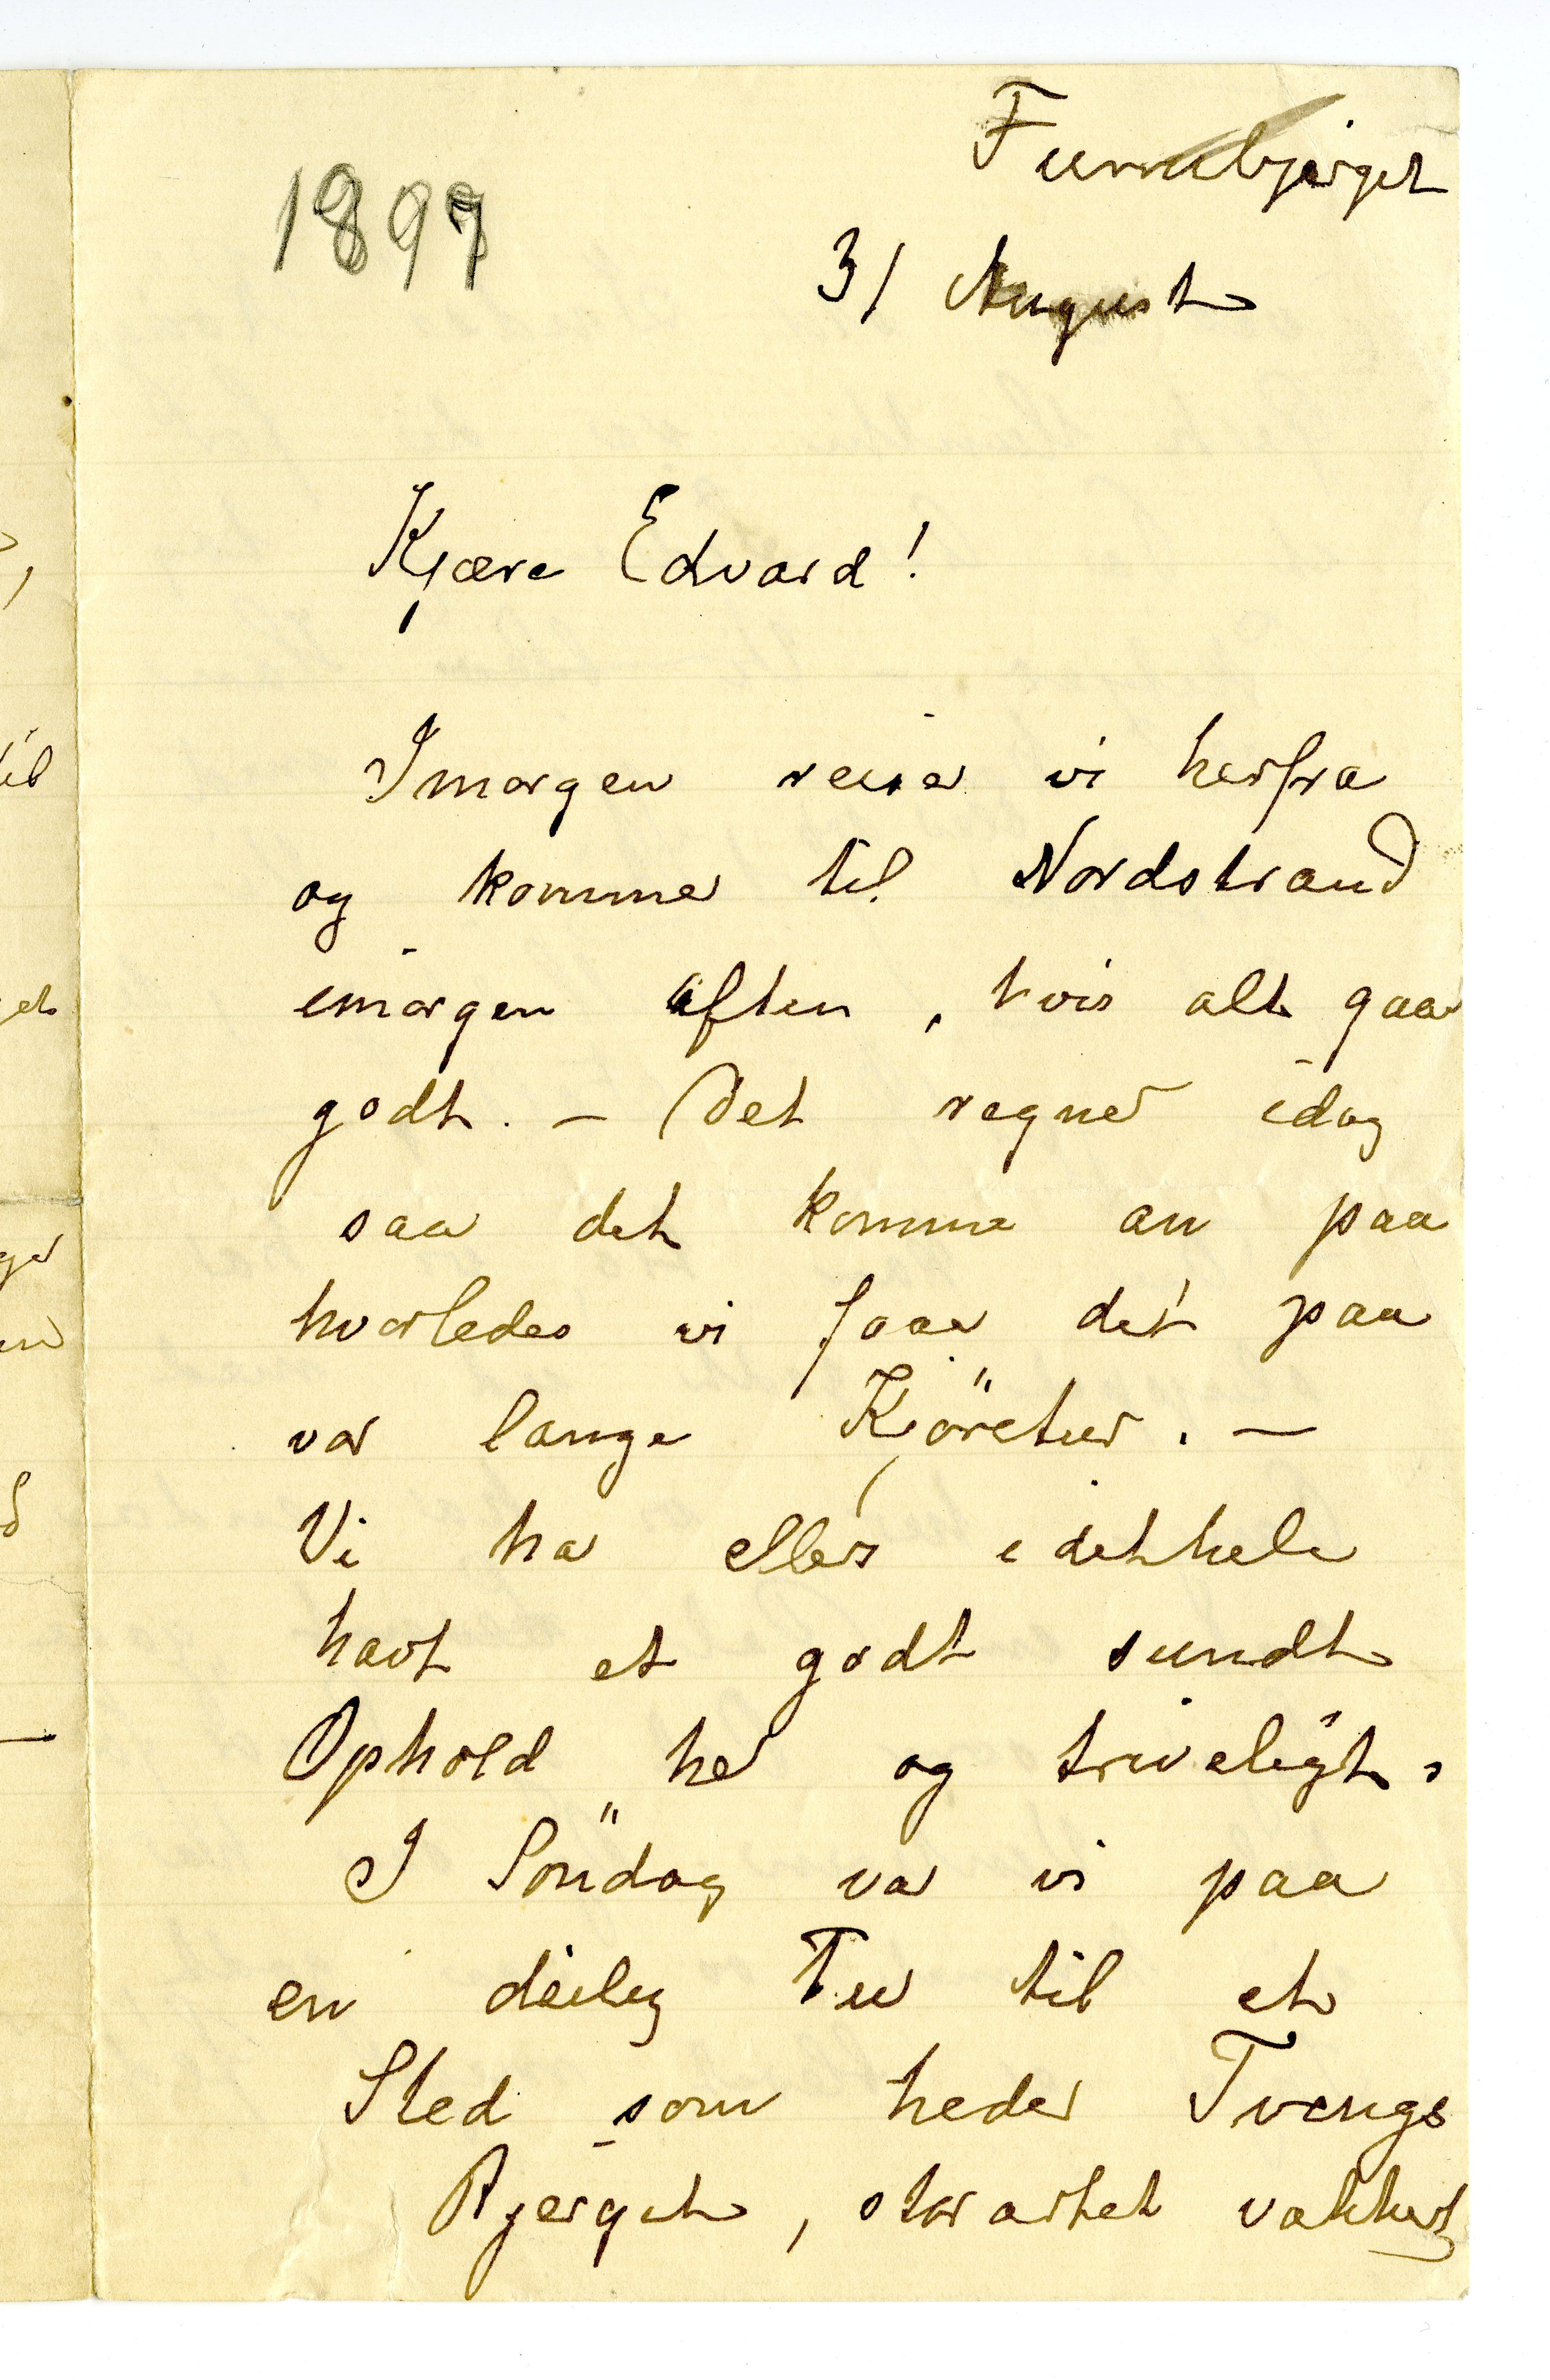 1897
Furubjerget
31 August
Kjære Edvard!
Imorgen reiser vi herfra
og kommer til Nordstrand
imorgen Aften, hvis alt gaar
godt. – Det regner idag
saa det kommer an paa
hvorledes vi faar det paa
vor lange Kjöretur. –
Vi har ellers idethele
havt et godt sundt
Ophold her og triveligt.
I Söndag var vi paa
en deilig Tur til et
Sted som heder Tvengs
Bjerget, storartet vakkert